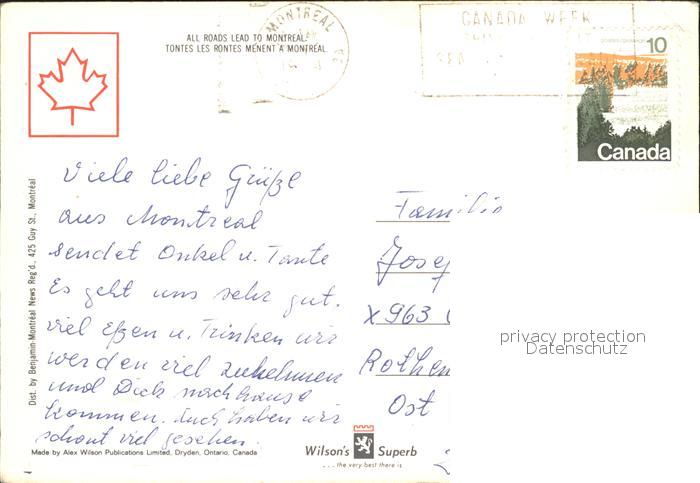 ALL ROADS LEAD TO MONTREAL.
TONTES LES RONTES MÈNENT A MONTREAL.
MONTREAL
CANADA WEEK
10
Canada
Viele liebe Grüße
aus Montreal
sendet Onkel u. Tante
Es geht uns sehr gut.
viel Eßen u. Trinken wir
werden viel zukehmen
und Dick nachhause
kommen. Auch haben wir
schont viel gesehen.
Familie
Josef
X963
Rothen
Ost
privacy protection
Datenschutz
Dist. by Benjamin-Montréal News Reg'd., 425 Guy St., Montréal
Made by Alex Wilson Publications Limited, Dryden, Ontario, Canada
Wilson's Superb
. . . the very best there is